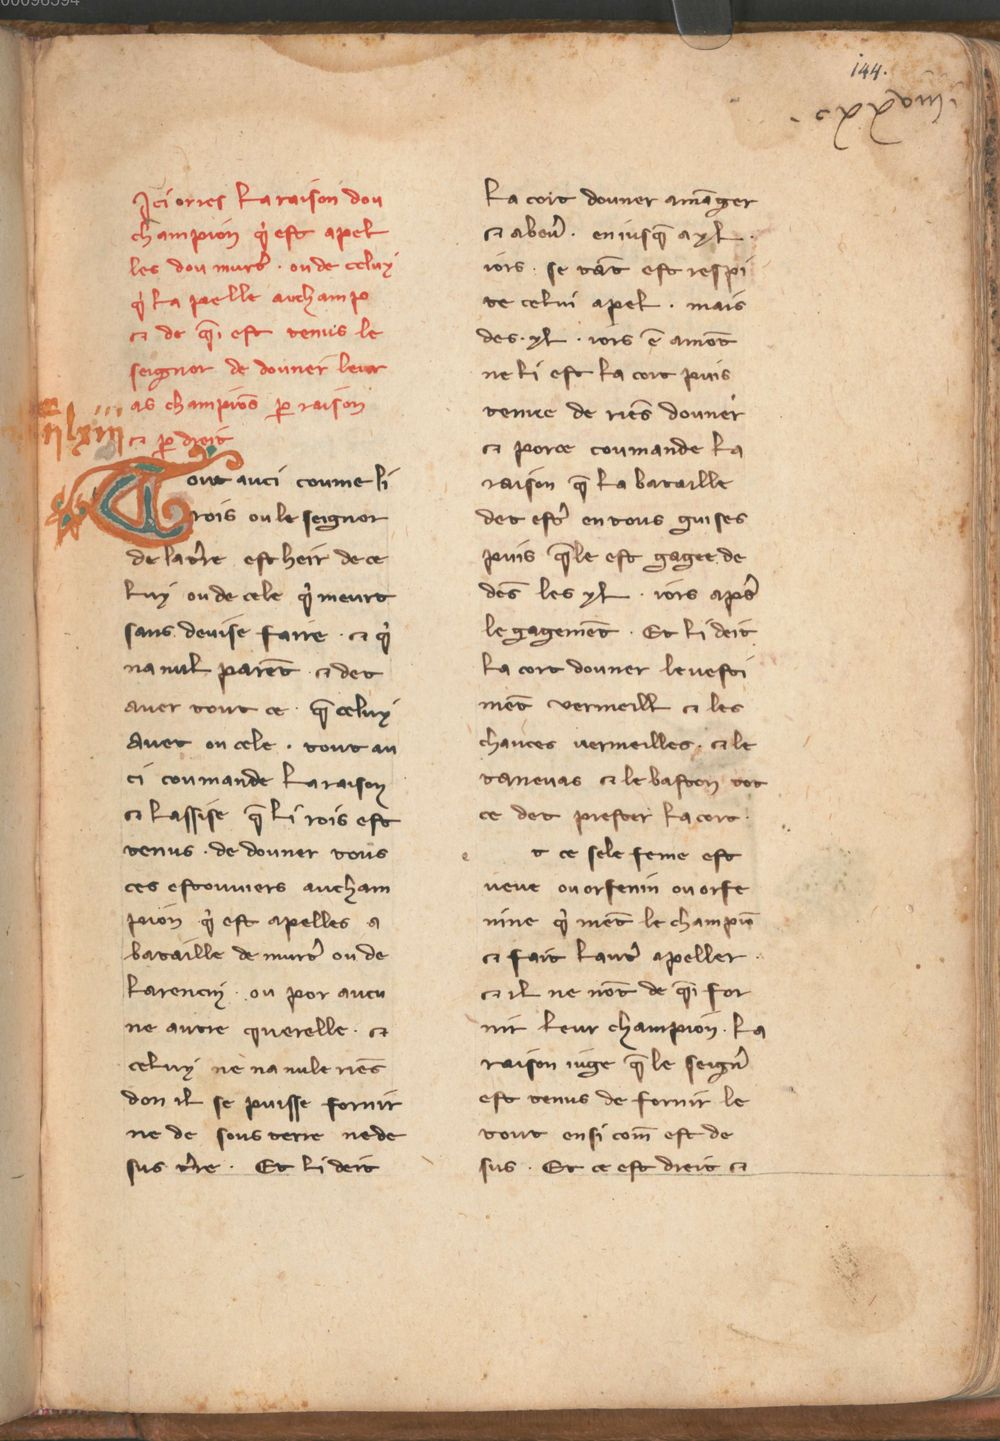 144.
cxxviii
Ici orres La raison dou
champion q̇ est apel
les dou murt᷑ · ou de celuy
q̇ La pelle au champ
⁊ de q̄i est tenus le
seignor de douner leur
as champiōs ꝑ raison
⁊ ꝑ droit
Tout auci coume li
rois ou le seignor
de la t᷑re est heir de ce
Luy ou de cele q̇ meurt
sans deuise faire · ⁊ q̇
na nuL parēt ⁊ det
auer tout ce · q̄ celuy
Auet ou cele · tout au
ci coumande La raison
⁊ Lassise q̄ Li rois est
tenus · de douner tous
ces estouuiers au cham
pion q̇ est apelles a
bataille de murt᷑ ou de
Larencin · ou por aucu
ne autre querelle · ⁊
celuy ne na nule riēs
don iL se puisse fornir
ne de sous terre ne de
sus t᷑re · Et Li deit
La cort douner a māger
⁊ a beu᷑ · en iusq̄ a xL ·
iors · se tāt est respi
te celui apeL · mais
des · xL · iors ē amōt
ne Li est La cort puis
tenue de riēs douner
⁊ por ce coumande La
raison q̄ La bataille
det est᷑ en tous guises
puis q̄le est gagee de
dēs les xL · iors ap᷑s
le gagemēt · Et Li deit
La cort douner le uesti
mēt vermeiLL ⁊ les
chauces uermeilles · ⁊ le
tareuas ⁊ le baston tot
ce det prester La cort ·
e t ce sele feme est
ueue ou orfenin ou orfe
nine q̇ mēt le champiō
⁊ fait Laut᷑ apeller ·
⁊ iL ne nōt de q̄i for
nir Leur champion · La
raison iuge q̄ le seign᷑
est tenus de fornir le
tout ensi com̄ est de
sus · Et ce est dreit ⁊